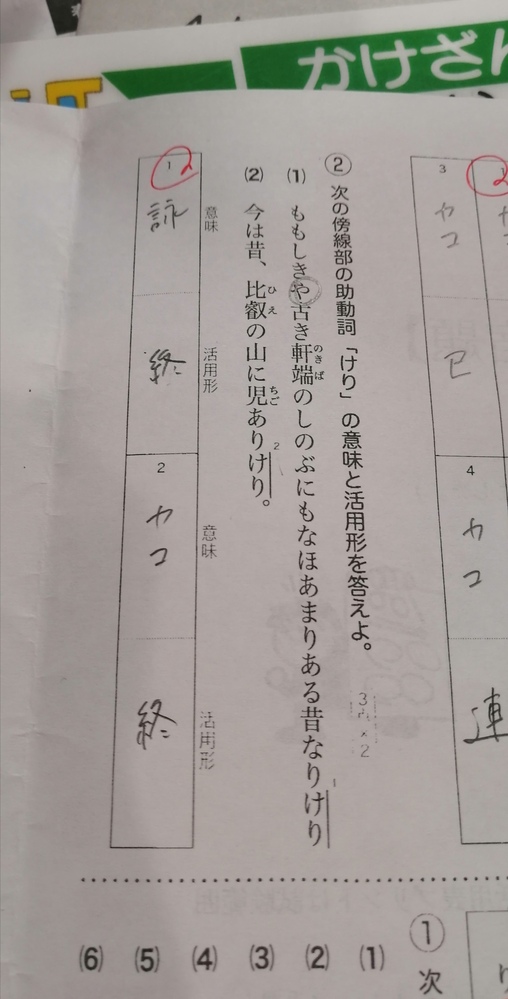 かけざん
3
カコ
已
4
カコ
連
② 次の傍線部の助動詞「けり」の意味と活用形を答えよ。
3点×2
(1) ももしきや古き軒端のしのぶにもなほあまりある昔なりけり
のきば
1
(2) 今は昔、比叡の山に児ありけり。
ひえ
ちご
2
意味
活用形
意味
活用形
1
詠
終
2
カコ
終
① 次
(1)
(2)
(3)
(4)
(5)
(6)